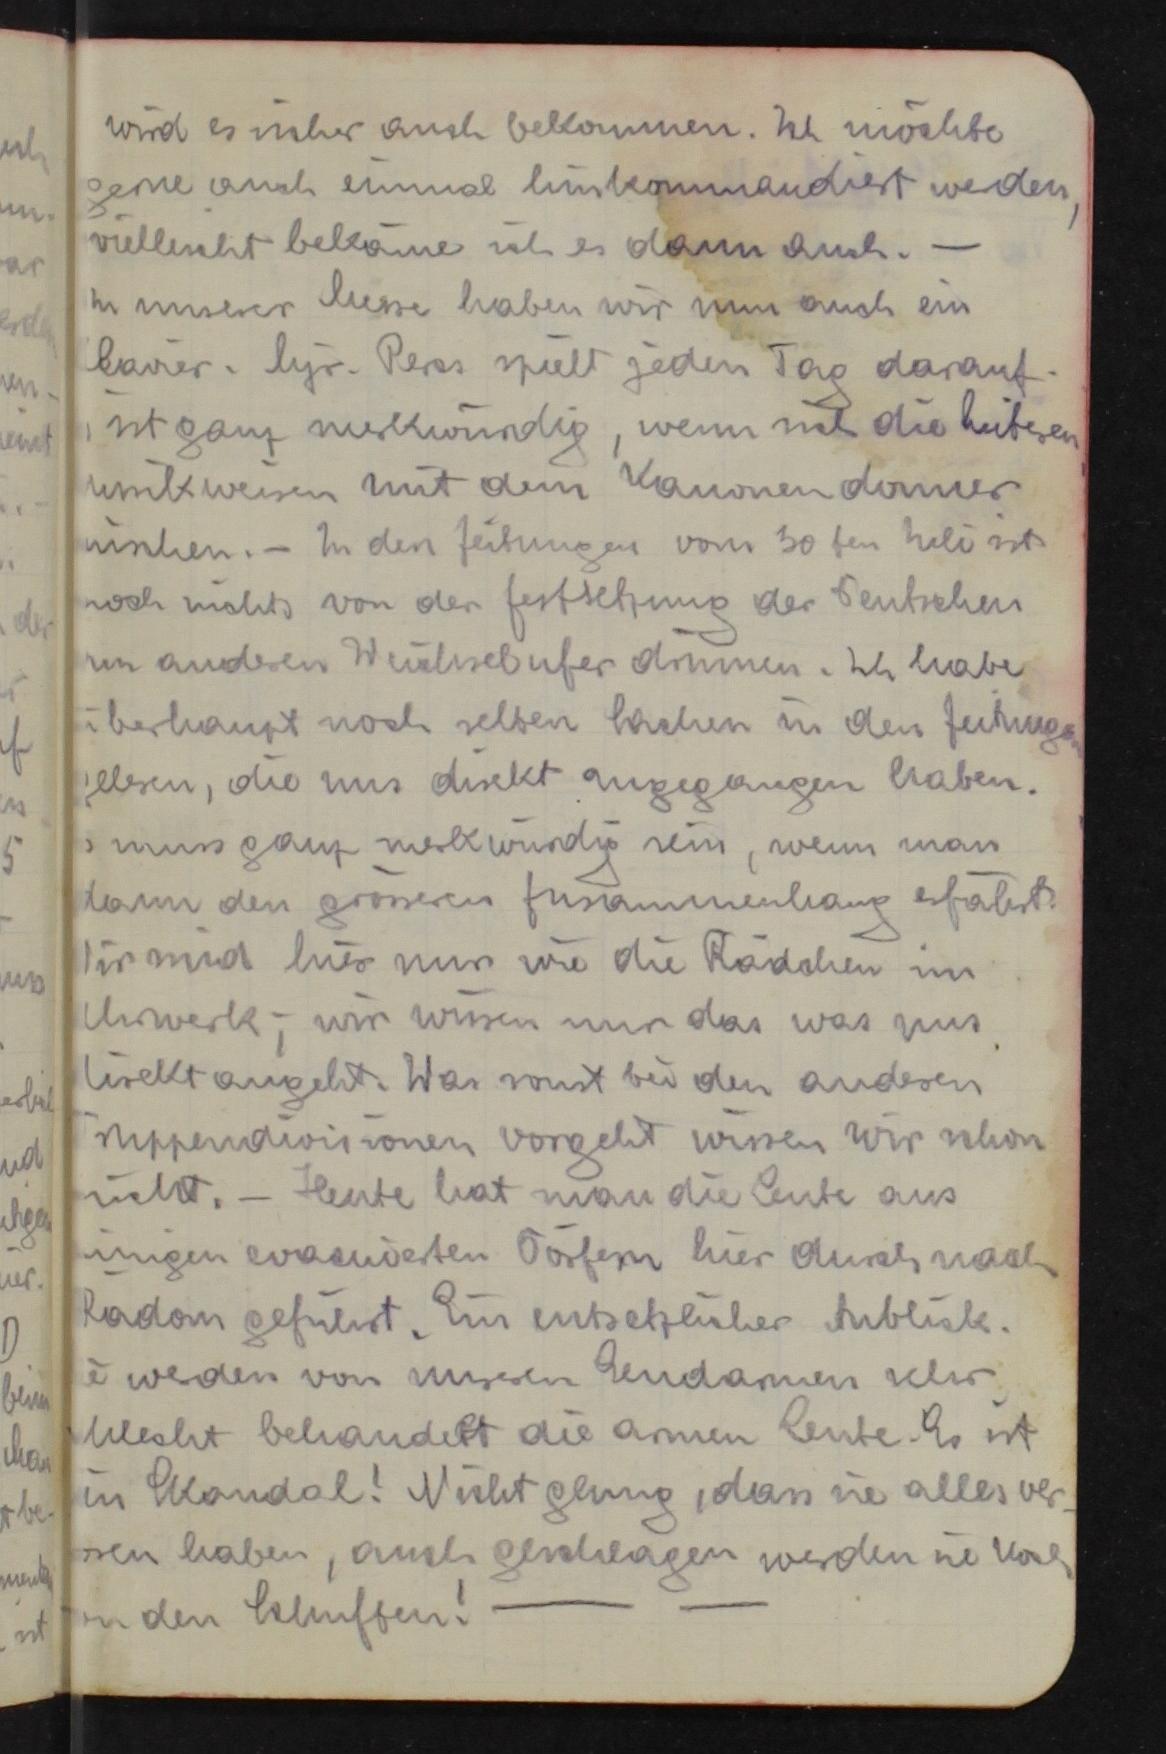 wird es sicher auch bekommen. Ich möchte
gerne auch einmal hinkommandiert werden,
vielleicht bekäme ich es dann auch. —
In unserer Messe haben wir nun auch ein
lavier. Lyr. Perss spielt jeden Tag darauf.
ist ganz merkwürdig, wenn sich die heiteren
usikweisen mit dem Kanonendonner
mischen. — In den Zeitungen vom 30ten Juli ist
noch nichts von der Festsetzung der Deutschen
am anderen Weichselufer drinnen. Ich habe
überhaupt noch selten Sachen in den Zeitungen
gelesen, die uns direkt angegangen haben.
s muss ganz merkwürdig sein, wenn man
dann den grösseren Zusammenhang erfährt.
Wir sind hier nur wie die Rädchen im
Uhrwerk; wir wissen nur das was uns
direkt angeht. Was sonst bei den anderen
Truppendivisionen vorgeht wissen wir schon
nicht. — Heute hat man die Leute aus
inigen evacuierten Dörfern hier durch nach
Radom geführt. Ein entsetzlicher Anblick.
ie werden von unseren Gendarmen sehr
schlecht behandelt die armen Leute. Es ist
ein Skandal! Nicht genug, dass sie alles ver-
ssen haben, auch geschlagen werden sie noch
von den Schuften! — —